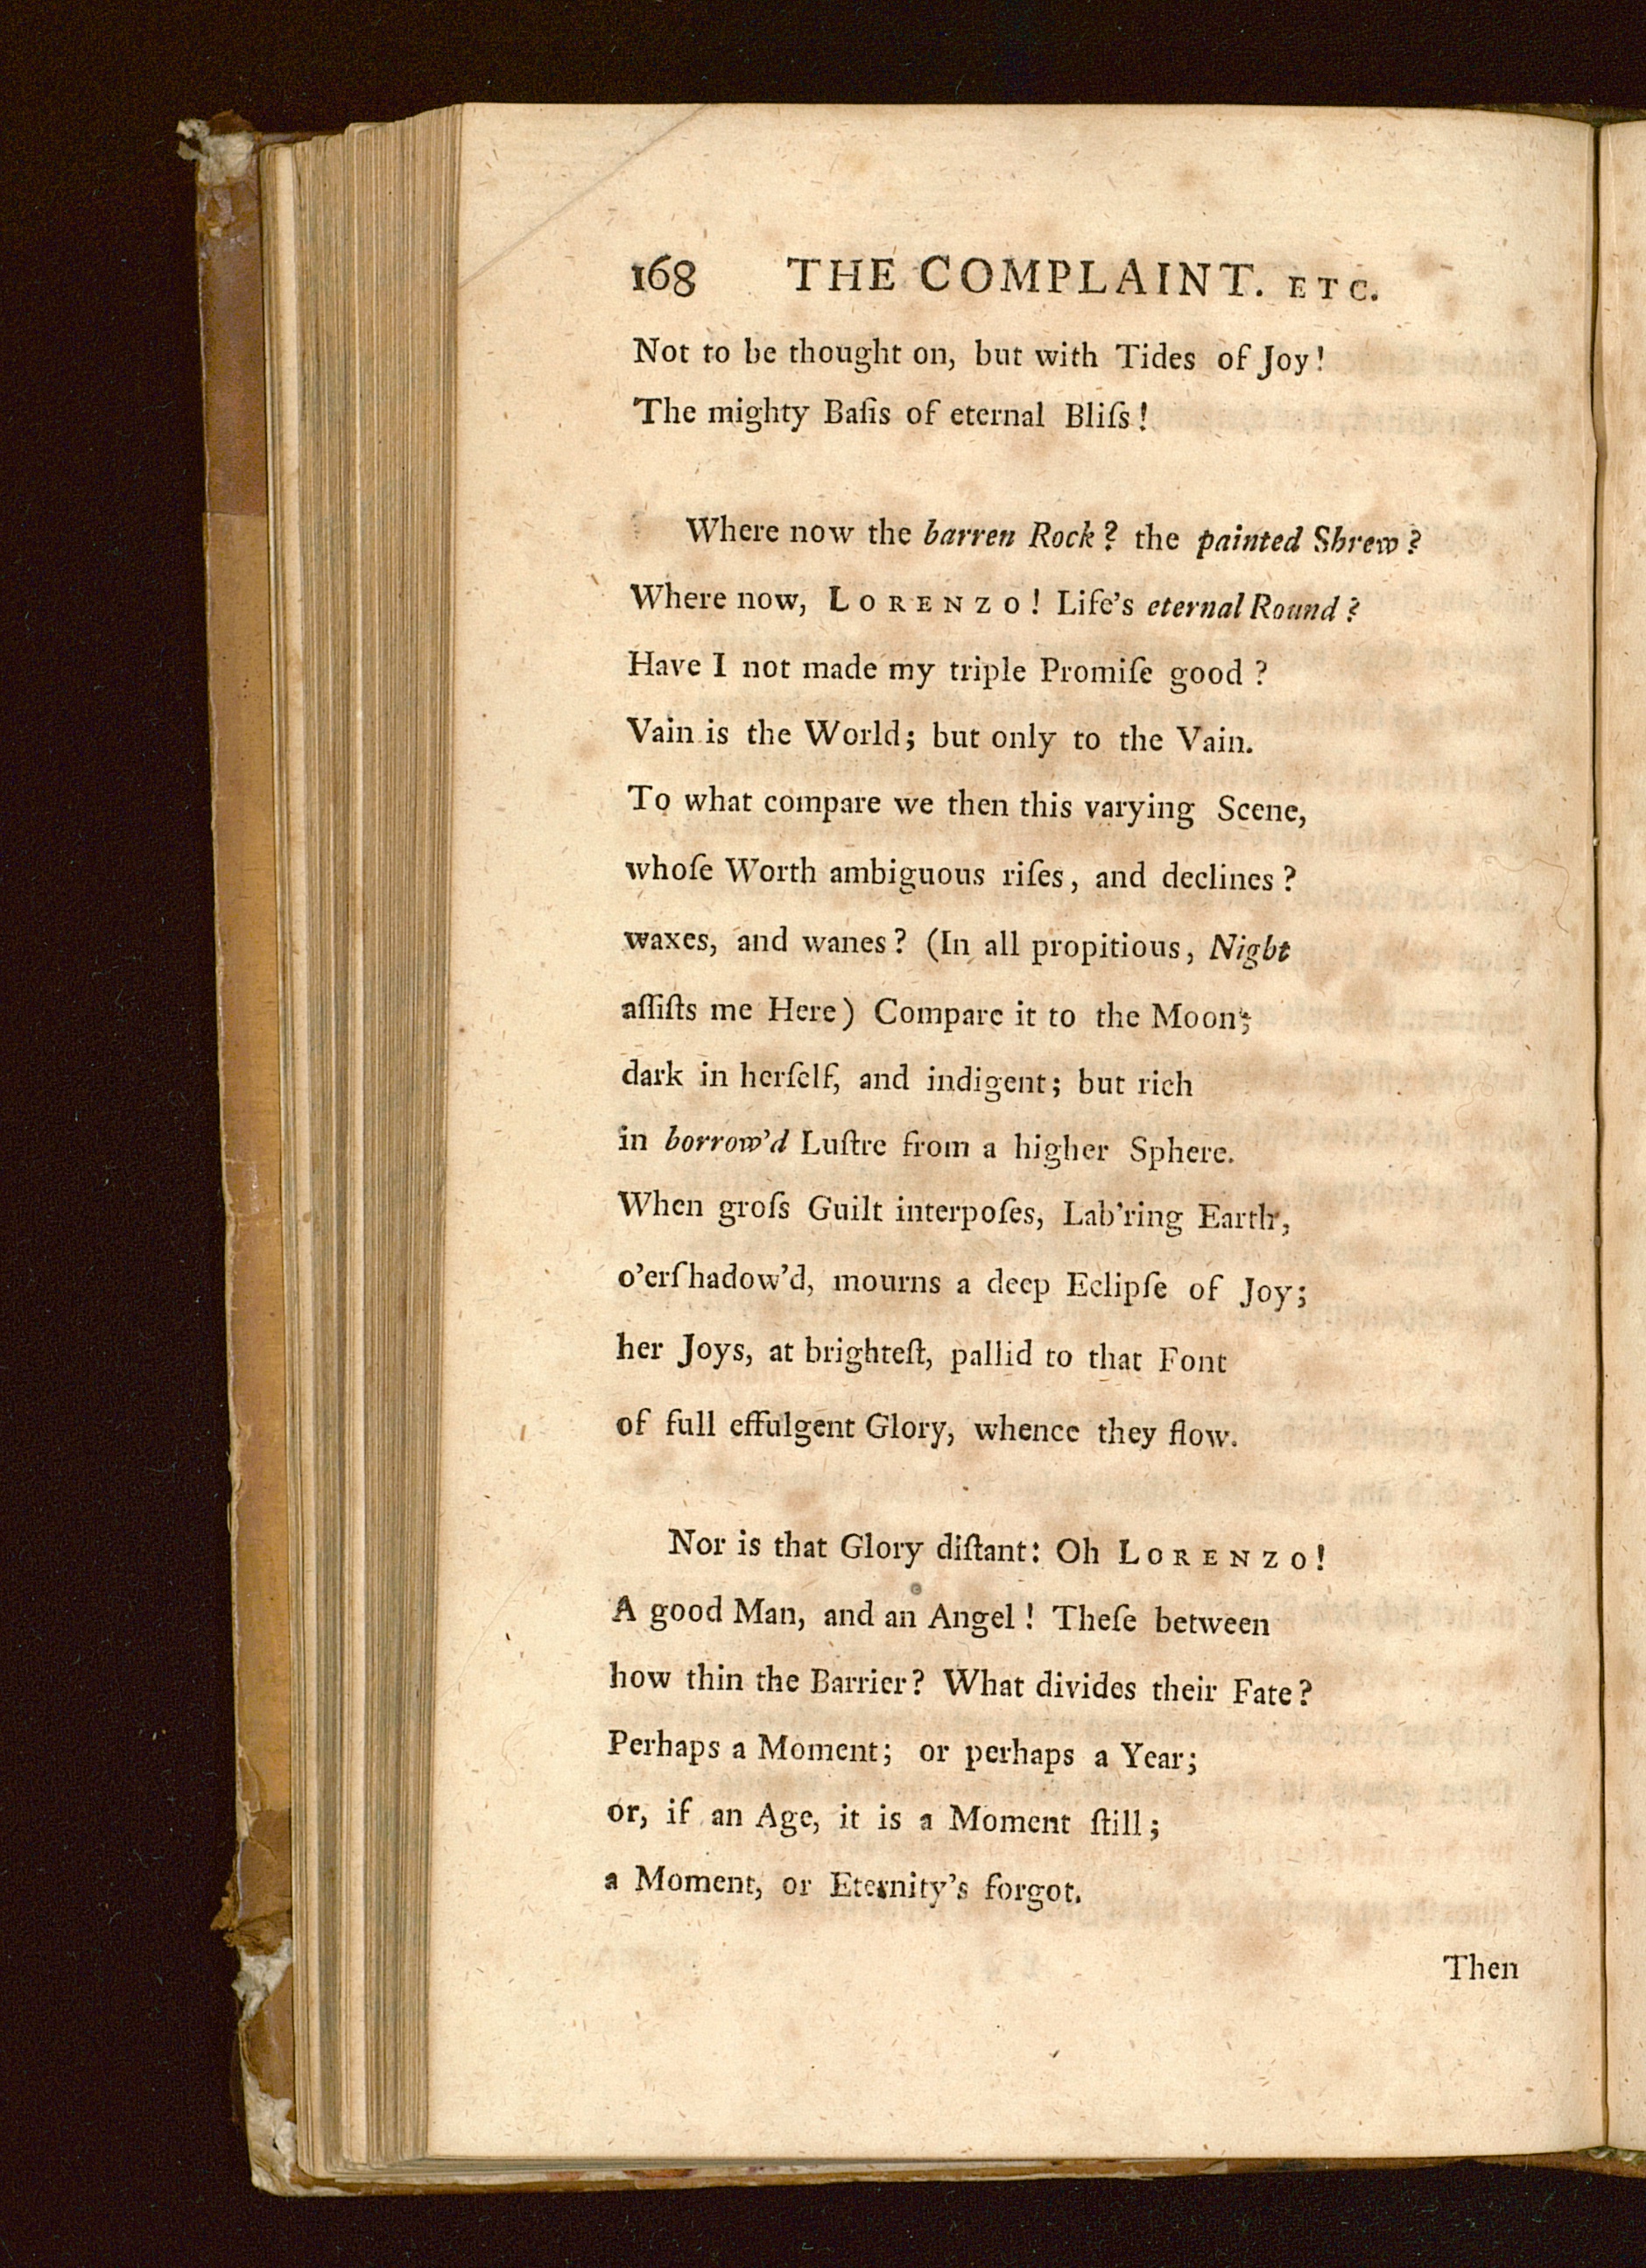 168 THE COMPLAINT. ETC.
Not to be thought on, but with Tides of Joy!
The mighty Baſis of eternal Bliſs!
Where now the barren Rock? the painted Shrew?
Where now, LORENZO! Life's eternal Round?
Have I not made my triple Promiſe good?
Vain is the World; but only to the Vain.
To what compare we then this varying Scene,
whoſe Worth ambiguous riſes, and declines?
waxes, and wanes? (In all propitious, Night
aſſiſts me Here) Compare it to the Moon;
dark in herſelf, and indigent; but rich
in borrow'd Luſtre from a higher Sphere.
When groſs Guilt interpoſes, Lab'ring Earth,
o'erſhadow'd, mourns a deep Eclipſe of Joy;
her Joys, at brighteſt, pallid to that Font
of full effulgent Glory, whence they flow.
Nor is that Glory diſtant: Oh LORENZO!
A good Man, and an Angel! Theſe between
how thin the Barrier? What divides their Fate?
Perhaps a Moment; or perhaps a Year;
or, if an Age, it is a Moment ſtill;
a Moment, or Eternity's forgot.
Then